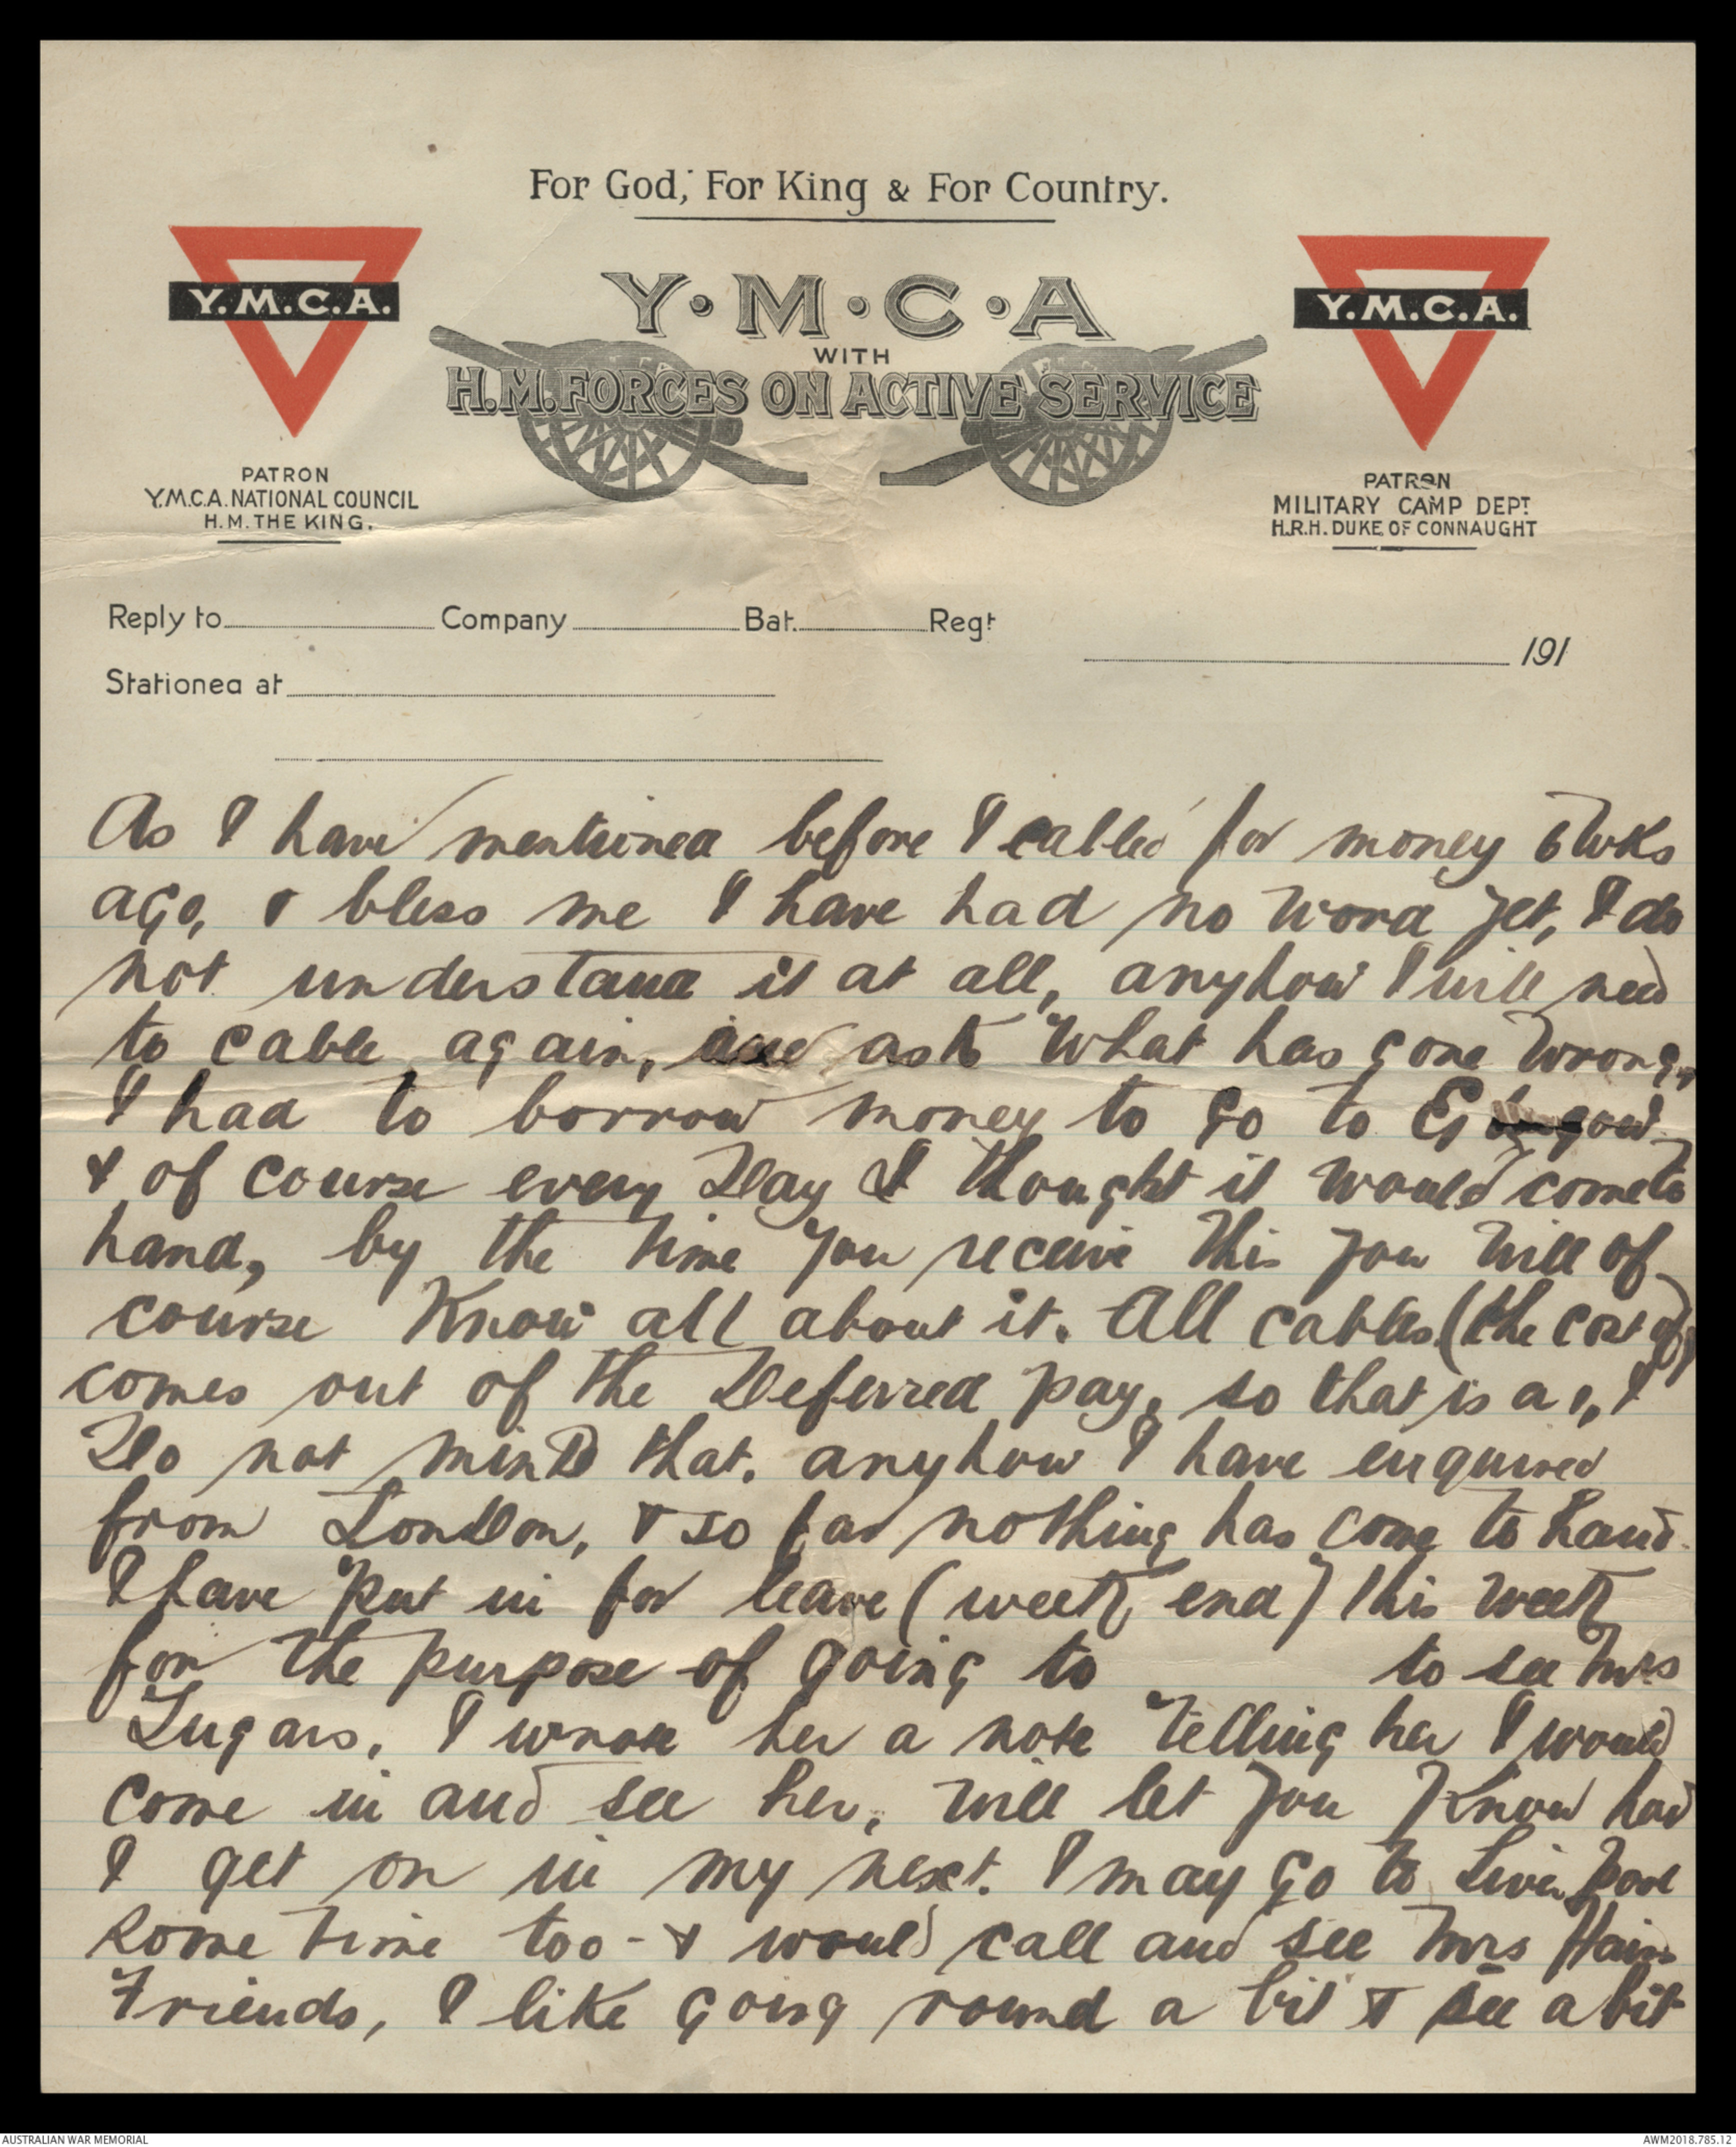 For God, For King & For Country.
Y.M.C.A.
Y.M.C.A
WITH
H.M. FORCES ON ACTIVE SERVICE
Y.M.C.A.
PATRON
Y.M.C.A. NATIONAL COUNCIL
H.M. THE KING.
PATRON
MILITARY CAMP DEPT.
H.R.H. DUKE OF CONNAUGHT
Reply to Company Bat. Regt
191
Stationed at
As I have mentioned before I cabled for money 6 wks
ago, & bless me I have had no word yet, I do
not understand it at all, anyhow I will need
to cable again, and ask what has gone wrong,
I had to borrow money to go to
& of course every Day I thought it would come to
hand, by the time you receive this you will of
course Know all about it. All cables (the cost of)
comes out of the Deferred pay, so that is a 1, I
Do not minD that. anyhow I have enquired
from LonDon, & so far nothing has come to hand.
I have put in for leave (week end) this week
for the purpose of going to to see Mrs
Lugars, I wrote her a note telling her I would
come in and see her, will let you Know how
I get on in my next. I may go to Liverpool
some time too - & would call and see Mrs Hains
Friends, I like going round a bit & see a bit
AUSTRALIAN WAR MEMORIAL
AWM2018.785.12